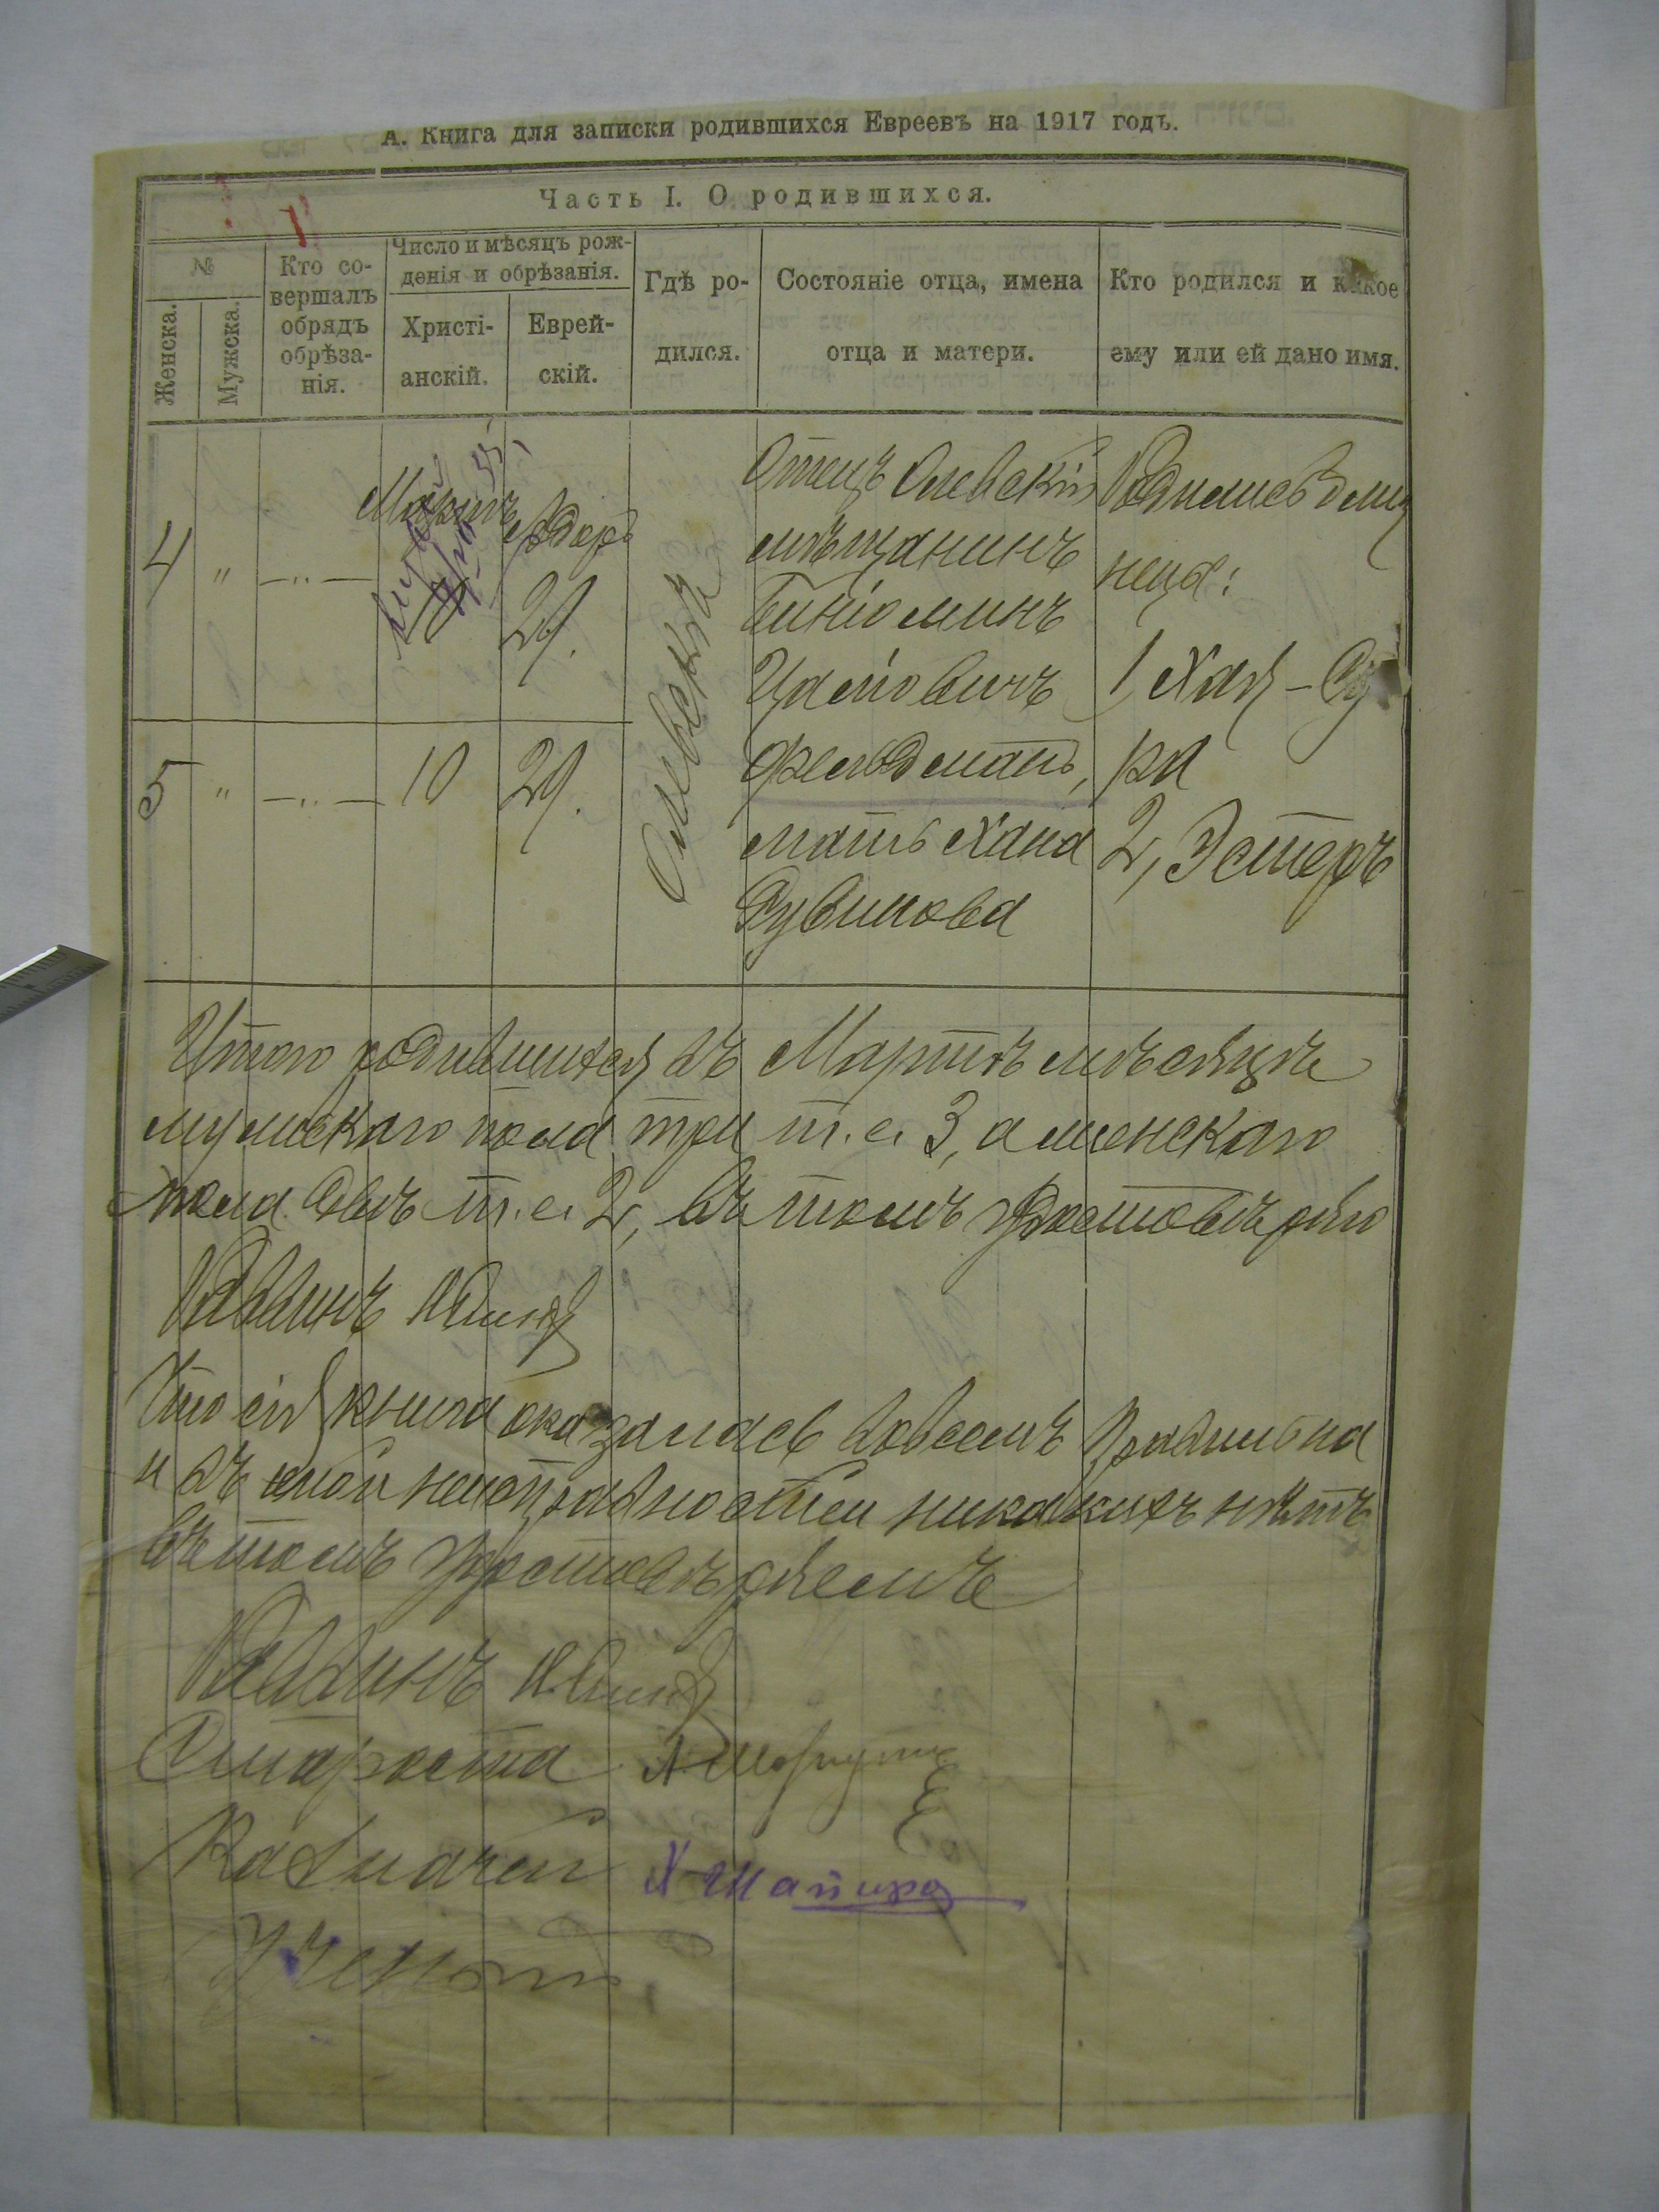 А. Книга для записки родившихся Евреевъ на 1917 годъ.
Часть I. О родившихся.
№
Женска.
Мужска.
Кто со-
вершалъ
обрядъ
обрѣза-
нія.
Число и мѣсяцъ рож-
денія и обрѣзанія.
Христі-
анскій.
Еврей-
скій.
Гдѣ ро-
дился.
Состояніе отца, имена
отца и матери.
Кто родился и какое
ему или ей дано имя.
4 " —"—
Мартъ
10
Адаръ
29.
5 " —"— 10 29.
Олевскъ
Отецъ Олевскій
мѣщанинъ
Биніоминъ
Фельдманъ,
мать Хана
Рувинова
Родились близ
неца:
1, Хая-Су
ра
2, Эстеръ
Итого родившихся въ Мартѣ мѣсяцѣ
мужскаго пола три т.е. 3, а женскаго
пола двѣ т.е. 2, въ томъ удостовѣряю
Раввинъ
Что сія книга оказалась во всемъ правильна
и въ оной неисправностей никакихъ нѣтъ
въ томъ удостовѣряемъ
Раввинъ
Староста
Казначей Х Шапиро
Ученый